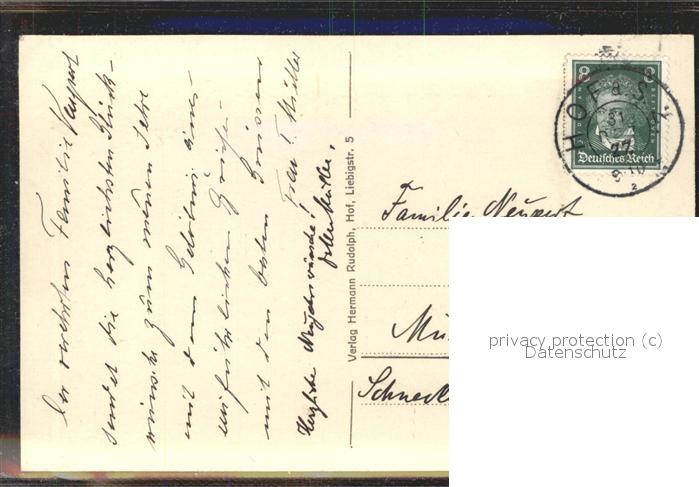 Der verehrten Familie Neupert
sendet die herzlichsten Glück-
wünsche zum neuen Jahre
mit dem Gelöbnis eines
ausführlichen
mit den besten Grüssen
Frau F. Müller
Herzliche Neujahrswünsche!
Müller.
Verlag Hermann Rudolph, Hof, Liebigstr. 5
8 8
Deutsches Reich
HOF a. S.
31
27
Familie Neupert
Mü
Schneck
privacy protection (c)
Datenschutz